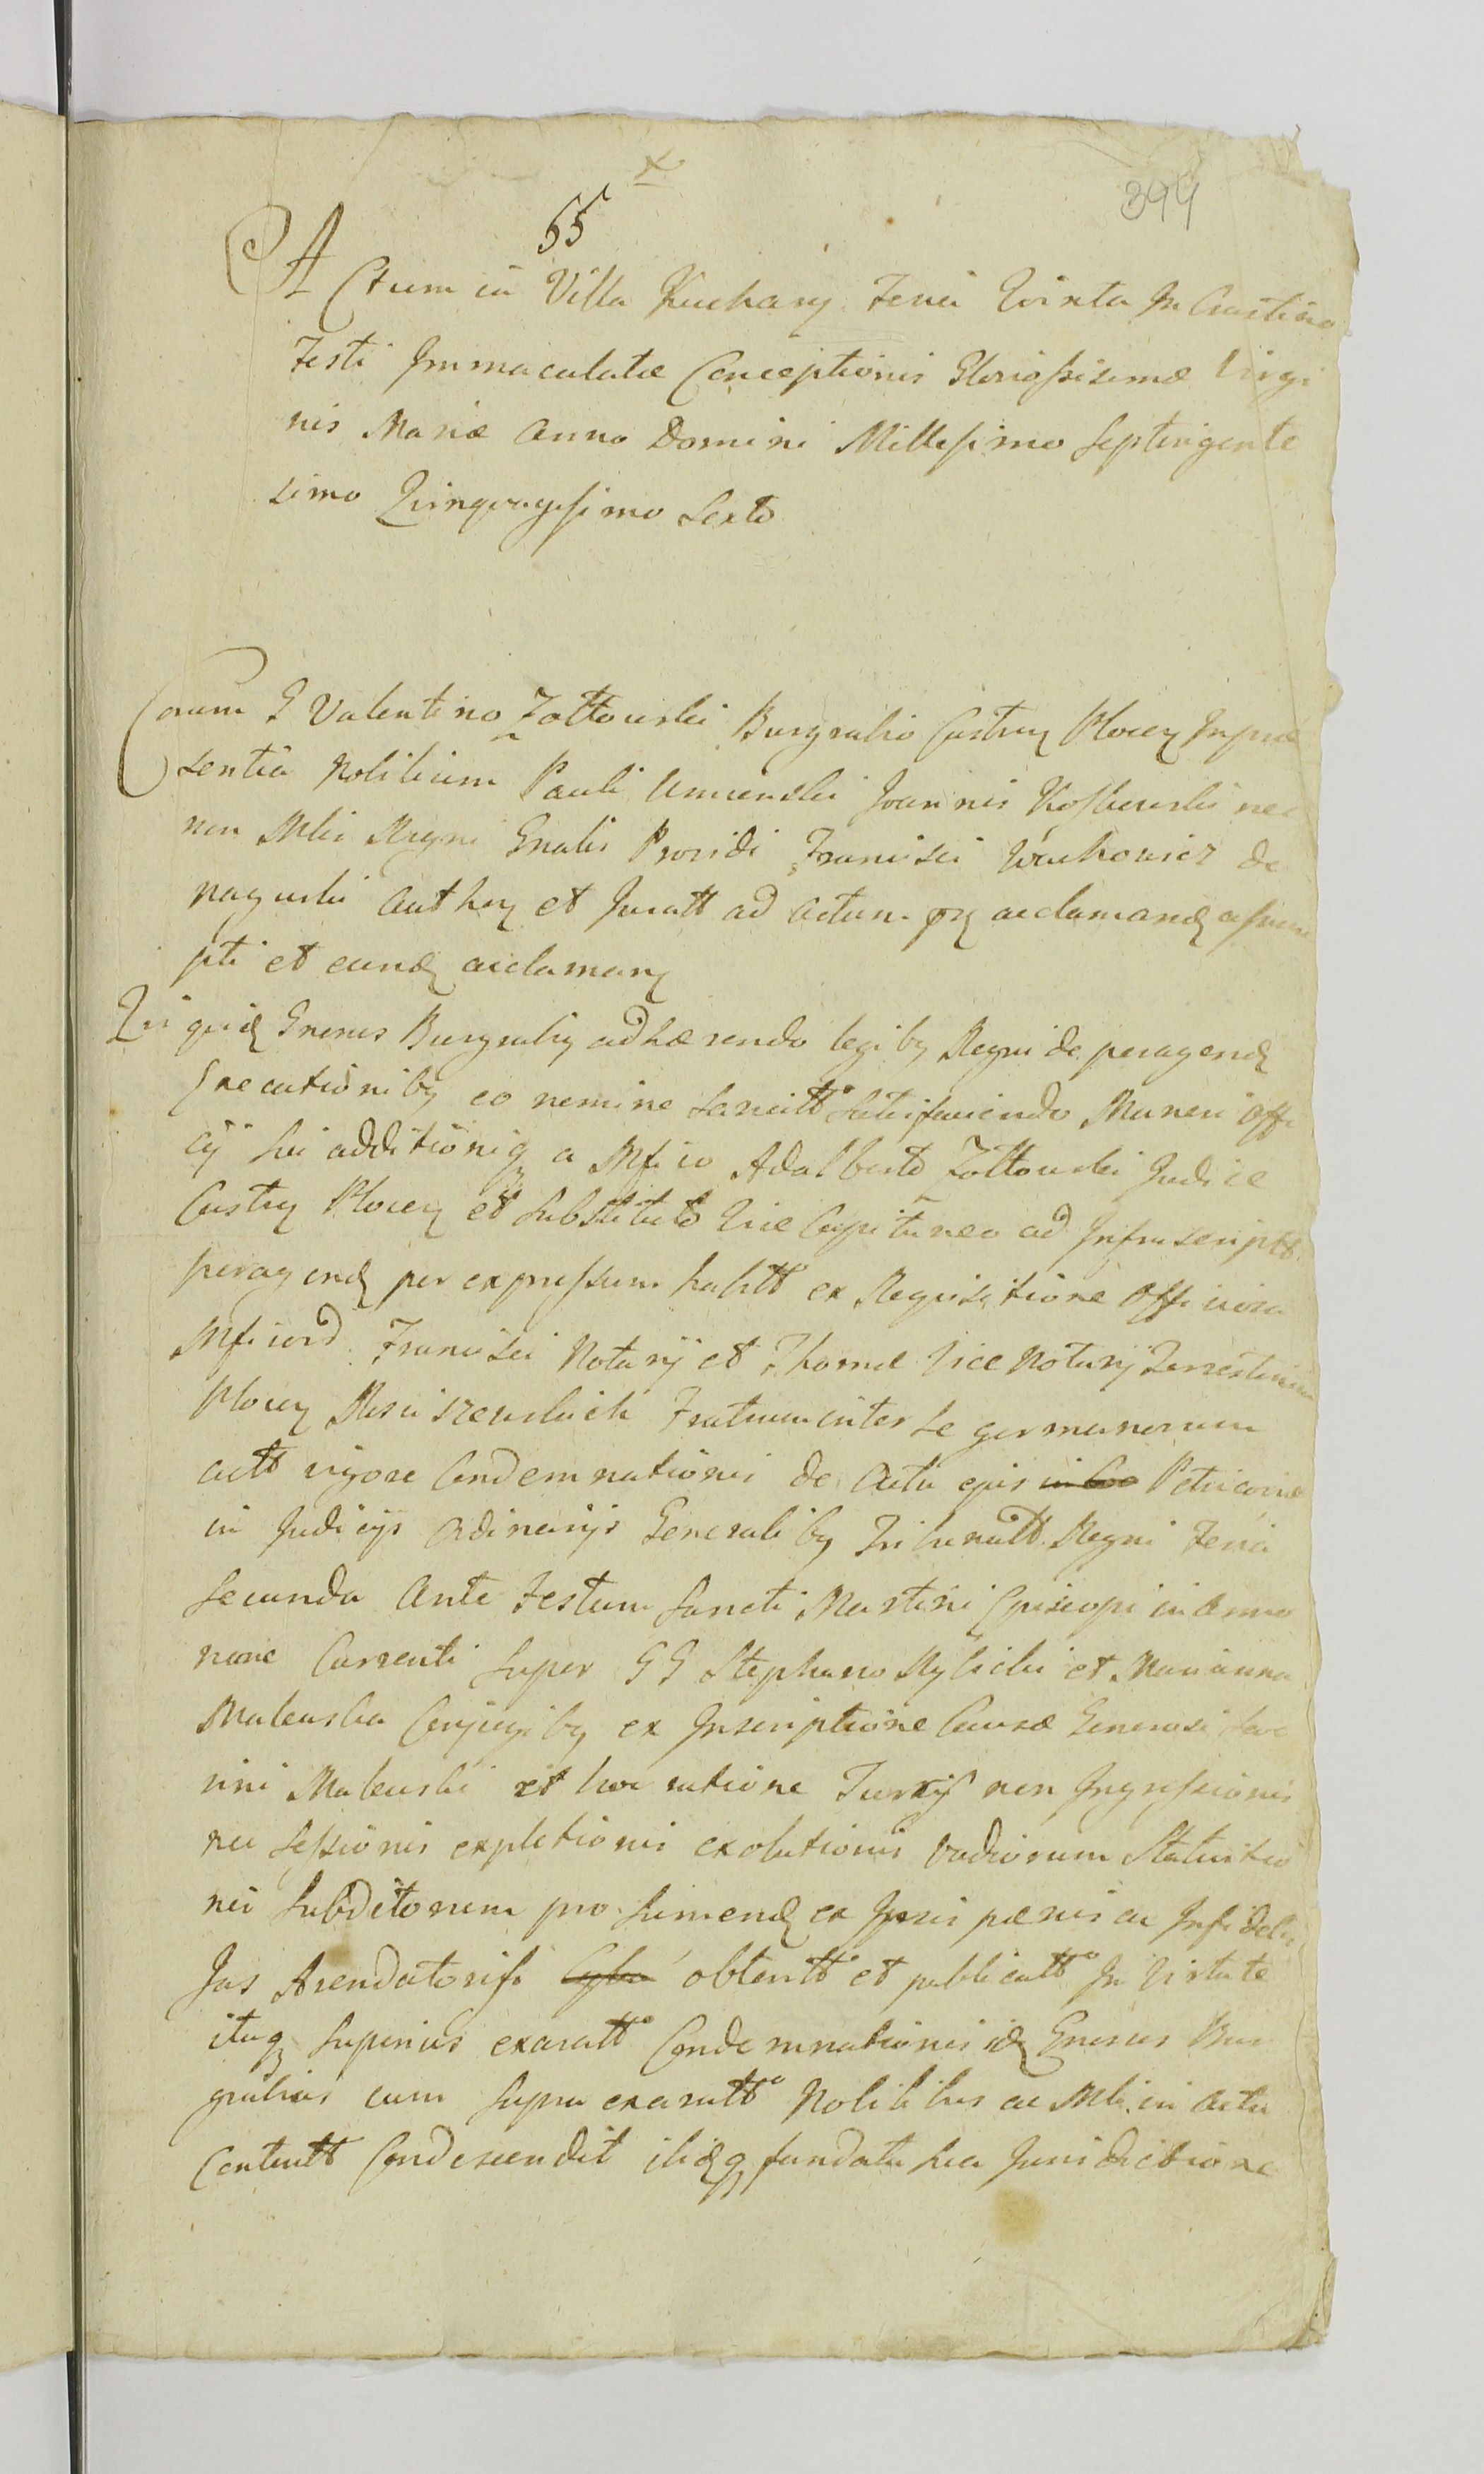 x
55
394
Actum in Villa Kuchary Feria Qvinta In Crastino
Festi Immaculatæ Conceptionis Gloriossisimæ Virgi
nis Mariæ Anno Domini Millesimo Septingente
simo Qvinqvagesimo Sexto
Coram G Valentino Zołtowski Burgrabio Castrēn Plocēn In præ
sentia Nobilium Pauli Umienski Joannis Kossowski nec
non Mlis Regni Gnalis Providi Francisci
naguski authēn et Juratt ad actum acclamand assum
pti et eund acclaman
Qui quid Gnrsus Burgrabig adhærendo legibg Regni de peragend
Executionibg eo nomine sancitt satisfaciendo Muneri Offi
cÿ sui additionig a Mfico Adalberto Zołtowski Judice
Castrēn Plocēn et Substituto Vice Capitaneo ad Infrascriptt
peragend per expressum habitt ex Reqvisitione Officiosa
Mficord Francisci Notarÿ et Thomæ Vice Notarÿ Terrestrium
Plocēn Fratrum inter se germanorum
actt vigore Condemnationis de Actu ejus Petricoviæ
in Judicÿs Ordinarÿs Generalibg Tribunatt Regni Feria
secunda Ante Festum Sancti Martini Episcopi in Anno
nunc Currenti super GG Stephano Rybicki et Marianna
Makowska Conjugibg ex Inscriptione Causæ Generosi
rini Makowski et hoc ratione Turris non Ingressionis
nec sessionis expletionis exolutionis vadiorum Statuitio
nis Subditorum pro sumend ex Ipsis pænis ac Infidelis
Jas Arendatoris obtentt et publicatt In Virtute
itaq superius exaratt Condemnationis id Gnrsus Bur
grabius cum supra exaratt Nobilibus ac Mli in actu
Contentt Condescendit ibidq fundata sua Jurisdictione